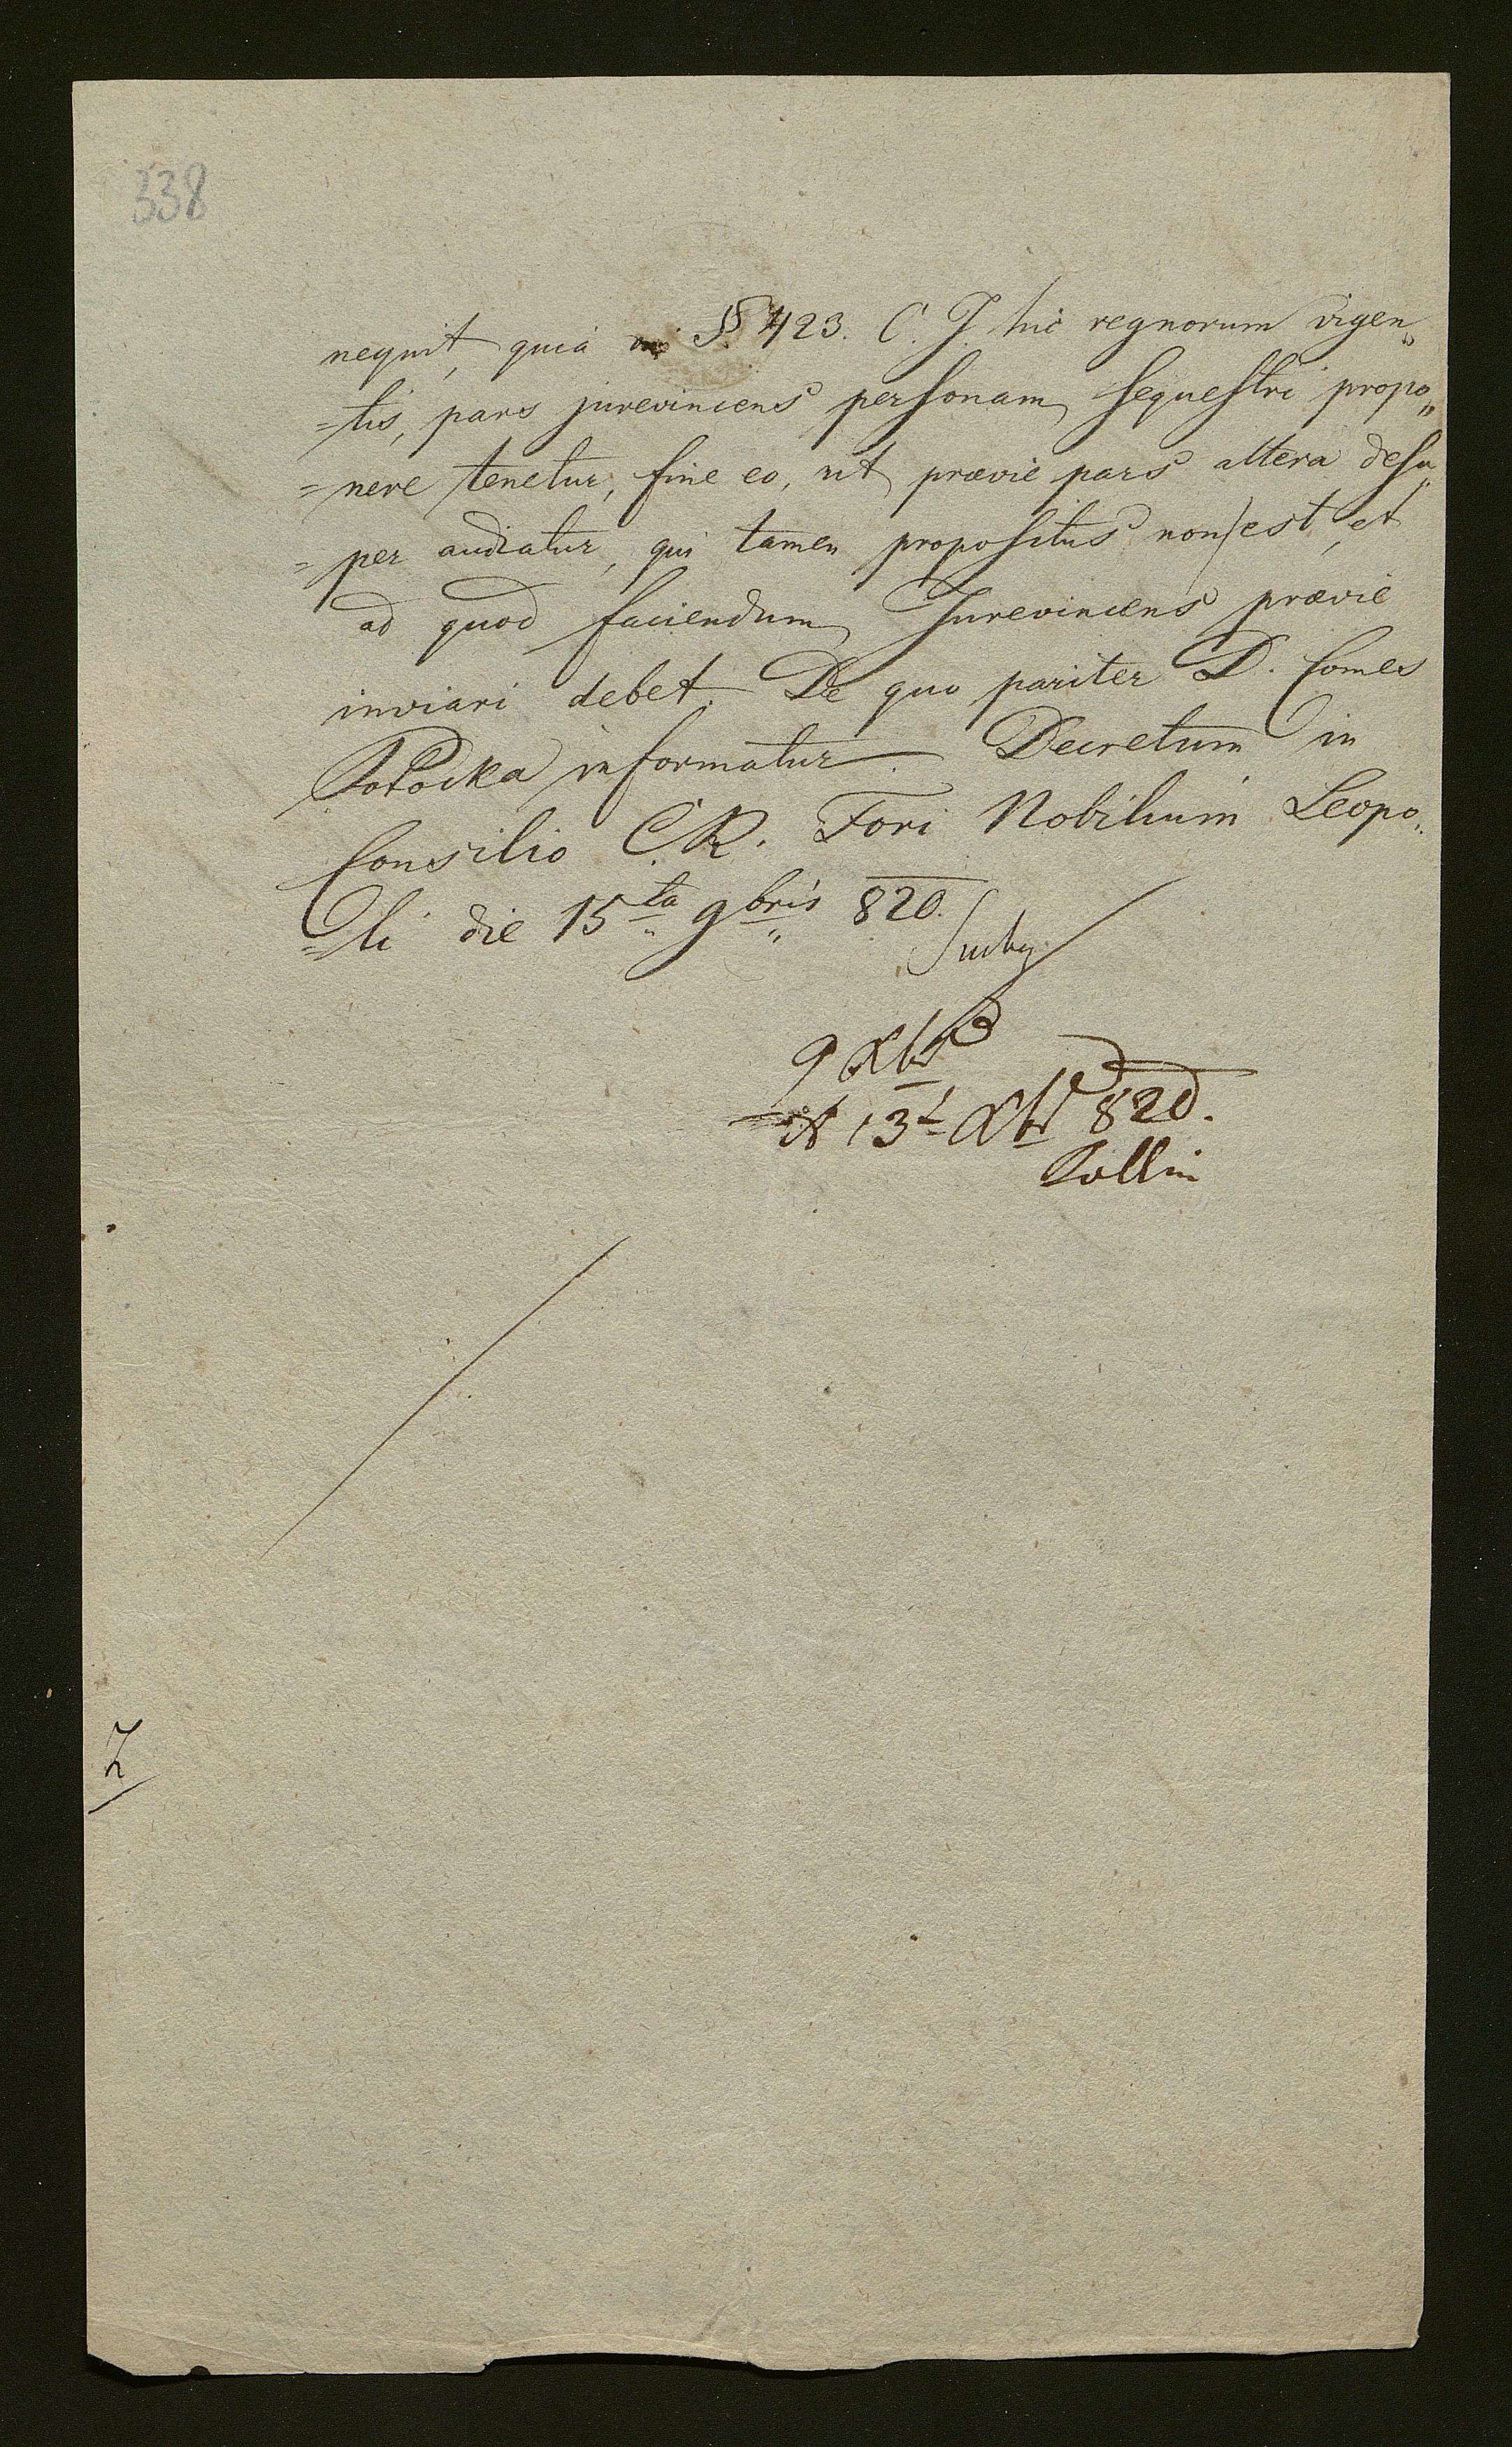 338
nequit, quia vi §. 423. C. J. hic regnorum vigen„
=tis, pars jurevincens personam Sequestri propo„
=nere tenetur, fine eo, ut prævie pars altera desu„
=per audiatur, qui tamen propositus non est, et
ad quod faciendum Jurevincens prævie
inviari debet. De quo pariter D. Comes
Potocka informatur. Decretum in
Consilio C. R. Fori Nobilium Leopo„
=li die 15ta 9bris 820.
Suchy
9 Xbr
13t Xbr 820.
Pollin